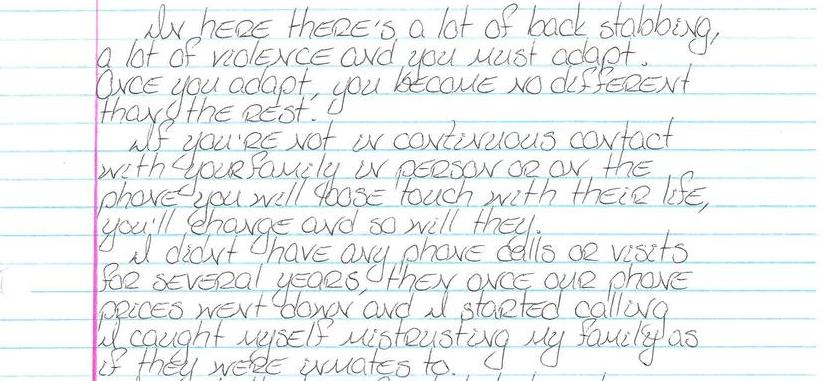 In here there's a lot of back stabbing,
a lot of violence and you must adapt.
Once you adapt, you become no different
than the rest.
If you're not in continuous contact
with your family in person or on the
phone you will loose touch with their life,
you'll change and so will they.
I didnt have any phone calls or visits
for several years, then once our phone
prices went down and I started calling
I caught myself mistrusting my family as
if they were inmates to.